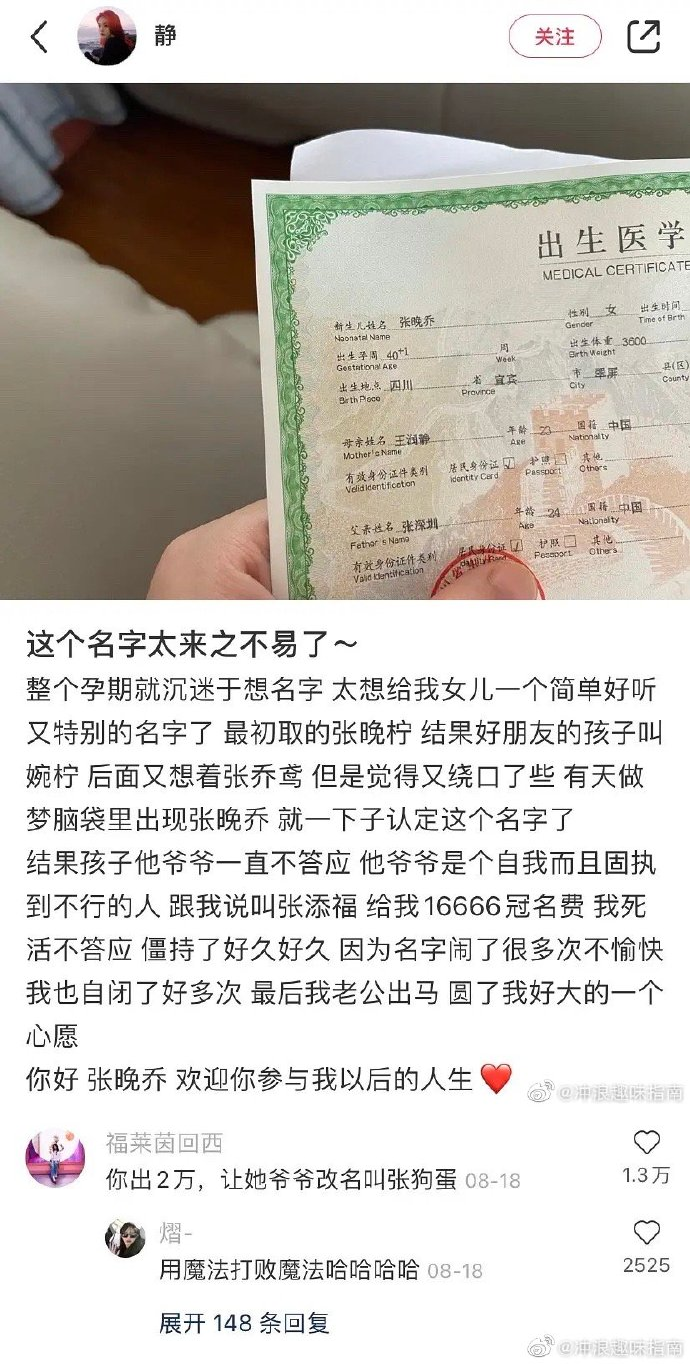 静
关注
出生医学
MEDICAL CERTIFICATE
新生儿姓名 张晚乔 性别 女 出生时间
Neonatal Name Gender Time of Birth
出生孕周 40+1 周 出生体重 3600
Gestational Age Week Birth Weight
出生地点 四川 省 宜宾 市 翠屏 县(区)
Birth Place Province City County
母亲姓名 王润静 年龄 23 国籍 中国
Mother's Name Age Nationality
有效身份证件类别 居民身份证 护照 其他
Valid Identification Identity Card Passport Others
父亲姓名 张深圳 年龄 24 国籍 中国
Father's Name Age Nationality
有效身份证件类别 居民身份证 护照 其他
Valid Identification Passport Others
这个名字太来之不易了～
整个孕期就沉迷于想名字 太想给我女儿一个简单好听
又特别的名字了 最初取的张晚柠 结果好朋友的孩子叫
婉柠 后面又想着张乔鸢 但是觉得又绕口了些 有天做
梦脑袋里出现张晚乔 就一下子认定这个名字了
结果孩子他爷爷一直不答应 他爷爷是个自我而且固执
到不行的人 跟我说叫张添福 给我16666冠名费 我死
活不答应 僵持了好久好久 因为名字闹了很多次不愉快
我也自闭了好多次 最后我老公出马 圆了我好大的一个
心愿
你好 张晚乔 欢迎你参与我以后的人生❤️
@冲浪趣味指南
福莱茵回西
你出2万，让她爷爷改名叫张狗蛋 08-18
1.3万
熠-
用魔法打败魔法哈哈哈哈 08-18
2525
展开 148 条回复
@冲浪趣味指南